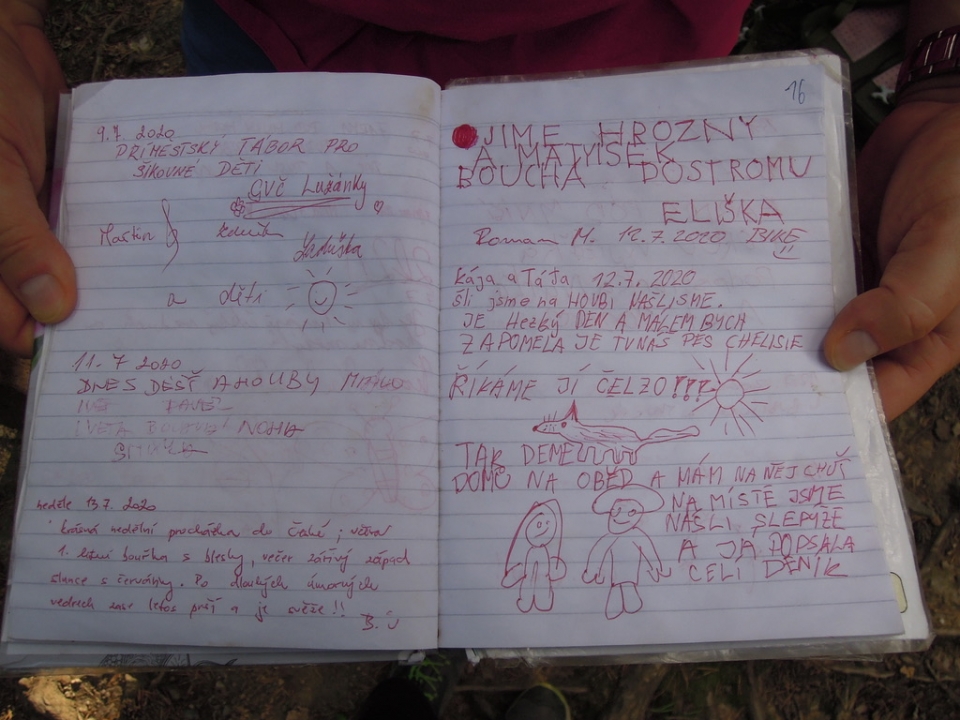 9.7 2020
PŘÍMĚSTSKÝ TÁBOR PRO
ŠIKOVNÉ DĚTI
CVČ Lužánky
Martin
a děti
11.7 2020
DNES DÉŠŤ A HOUBY
NOHA
neděle 2020
krásná nedělní procházka do
1. bouřka s blesky, večer zářivý západ
slunce s červánky. Po dlouhých úmorných
vedrech zase letos prší a je svěže!!
B.
16
JIME HROZNY
A MATYSEK
BOUCHÁ DOSTROMU
ELIŠKA
Roman M. 12.7.2020 BIKE
Kája a Táťa 12.7.2020
šli jsme na HOUBI NAŠLISME.
JE Hezký DEN A MALEM BYCH
ZAPOMELA JE TU NÁŠ PES CHELISIE
ŘÍKÁME JÍ ČELZO!!!
TAK DEME
DOMŮ NA OBĚD A MÁM NA NĚJ CHUŤ
NA MÍSTĚ JSME
NAŠLI SLEPÝŽE
A JÁ POPSALA
CELÍ DENÍK